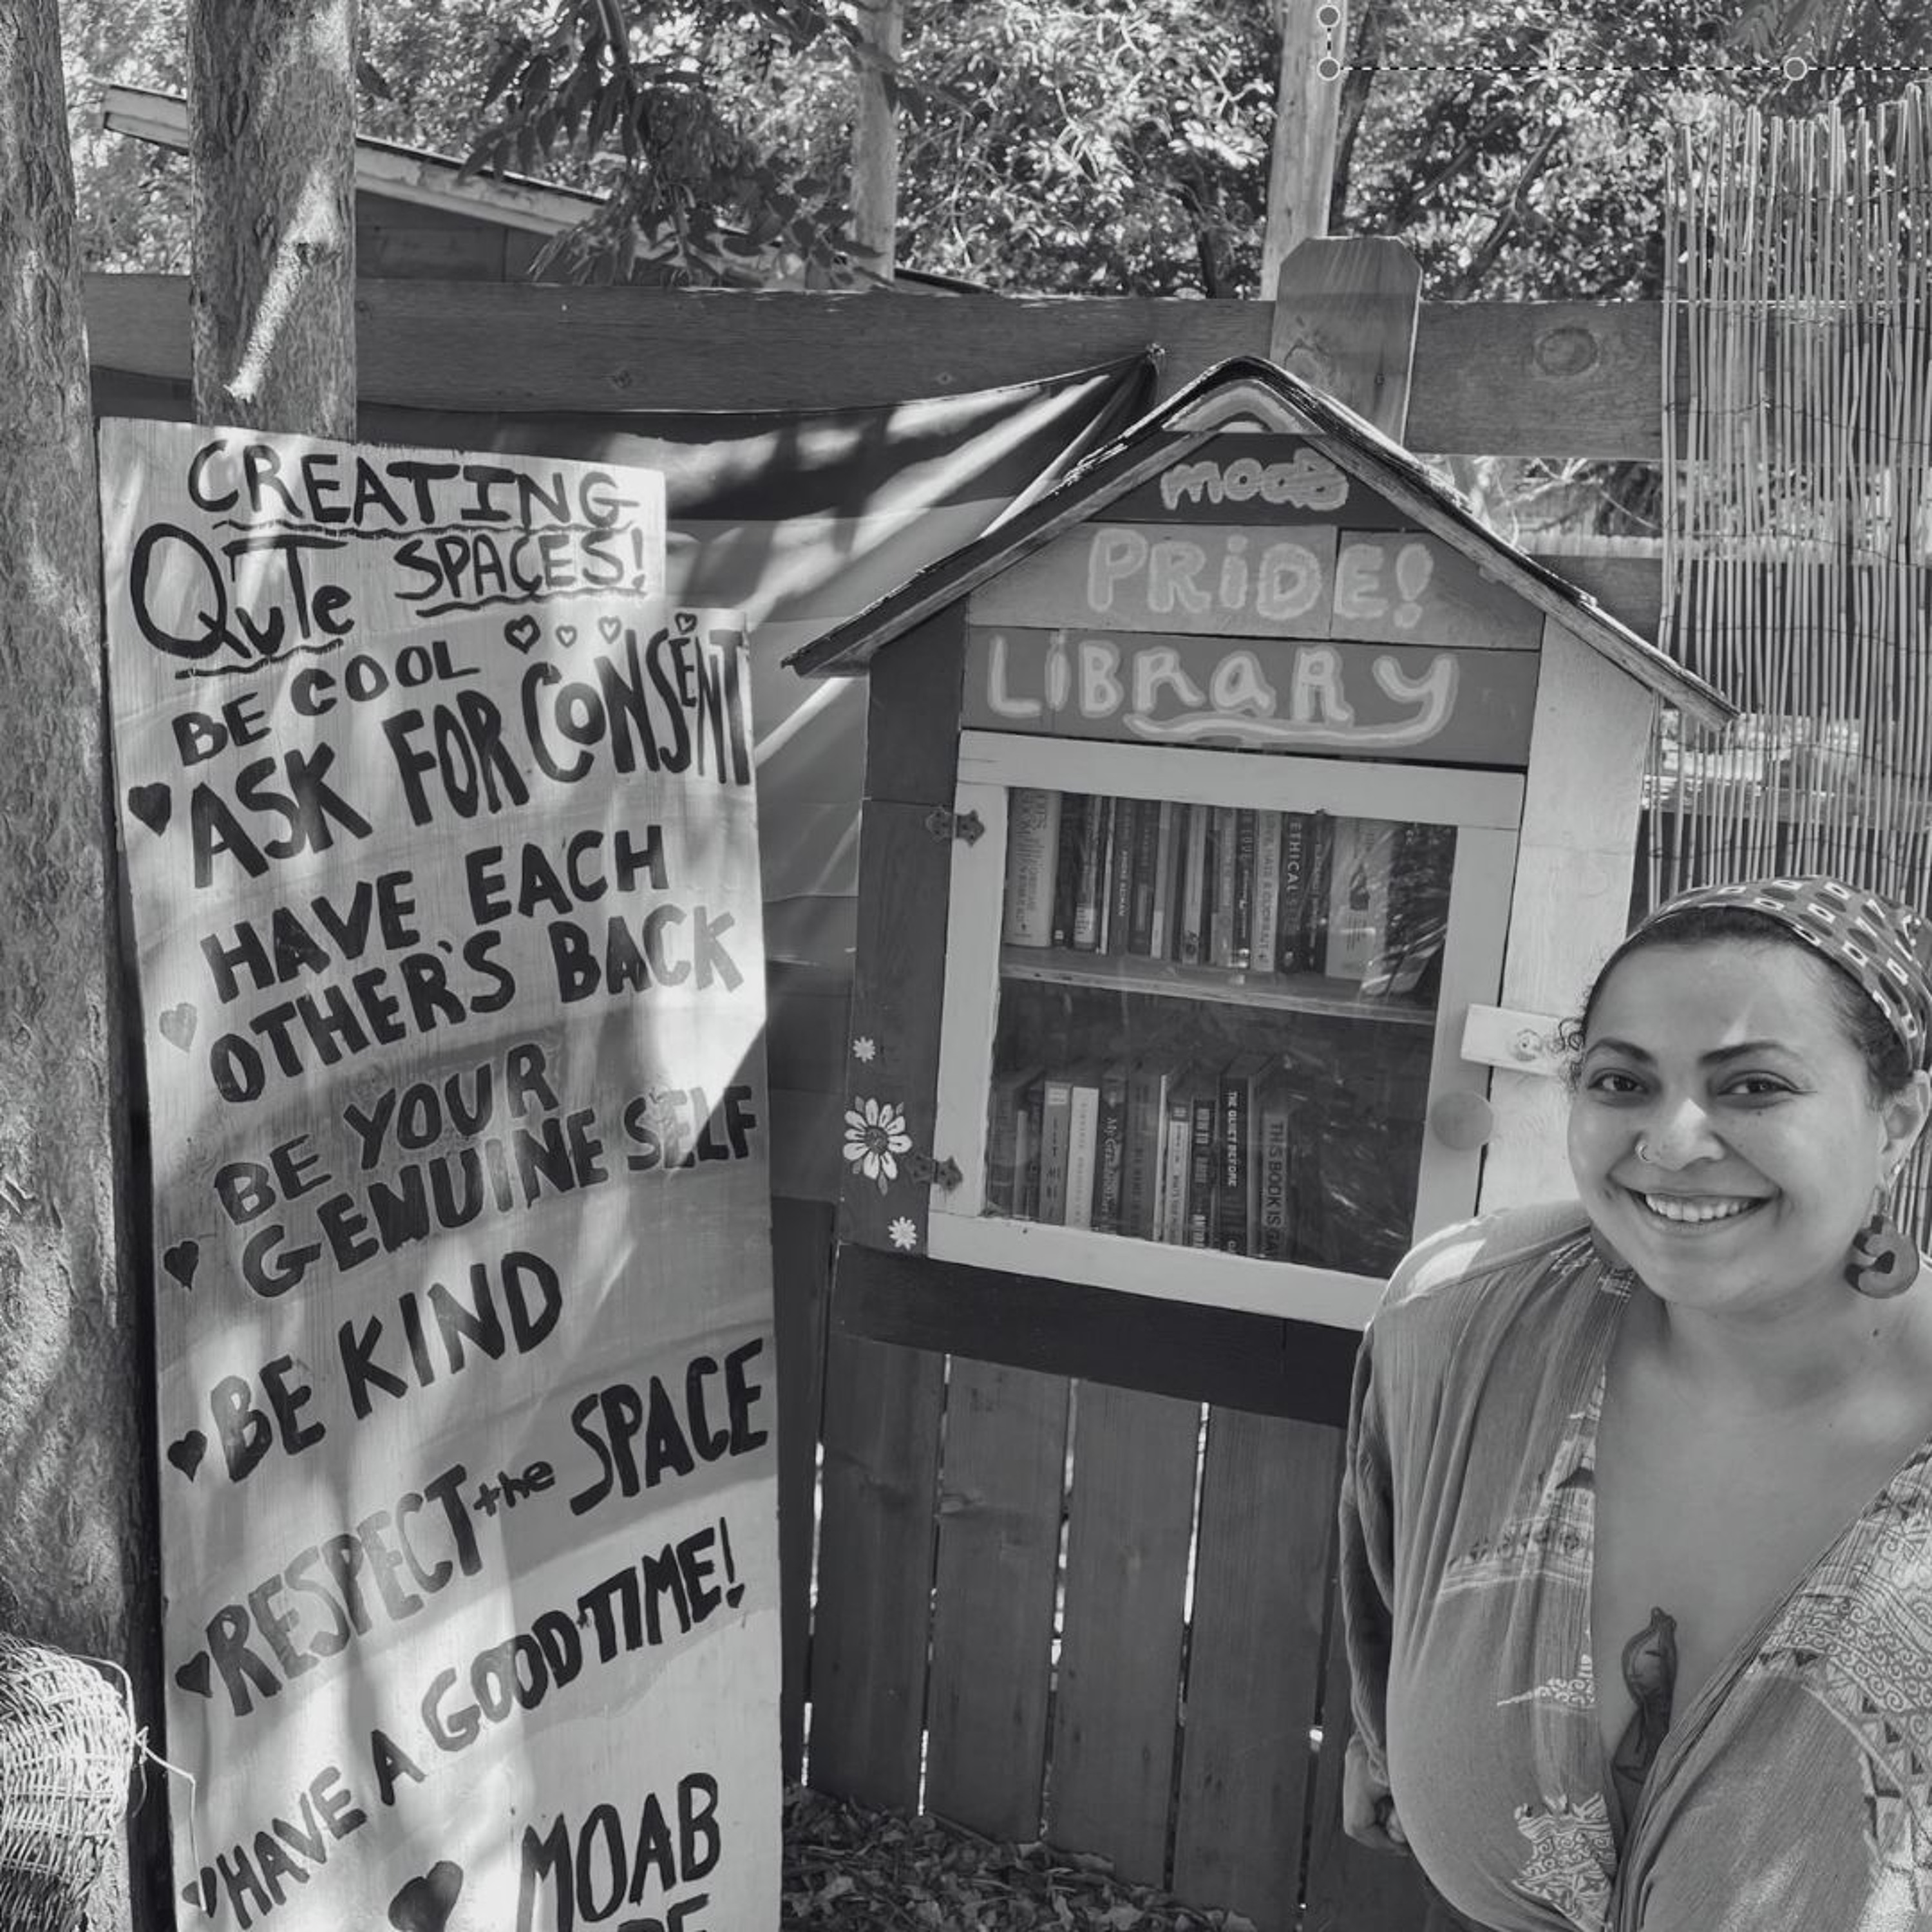 CREATING
QuTe SPACES!
BE COOL
ASK FOR CONSENT
HAVE EACH
OTHER'S BACK
BE YOUR
GENUINE SELF
BE KIND
RESPECT the SPACE
HAVE A GOOD TIME!
MOAB
moab
PRiDE!
LiBRaRy
ETHICAL
THE QUIET BEFORE
THIS BOOK IS GAY